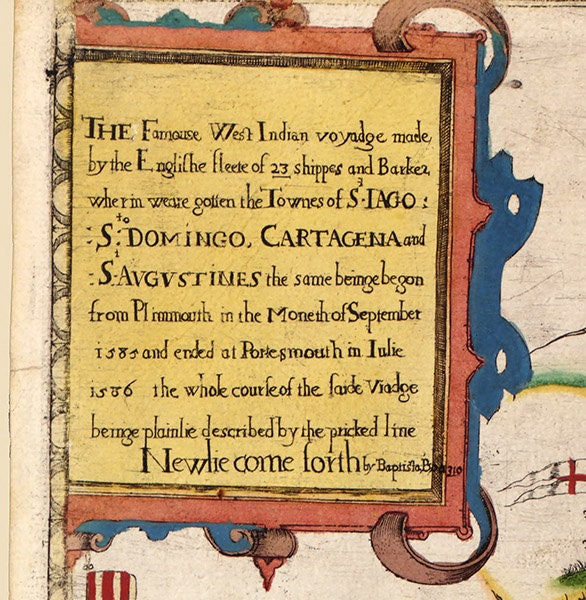 THE Famouse West Indian voyadge made
by the Englishe fleete of 23 shippes and Barkes
wherin weare gotten the Townes of St IAGO:
:Sto DOMINGO, CARTAGENA and
:St AVGVSTINES the same beinge begon
from Plimmouth in the Moneth of September
1585 and ended at Portesmouth in Iulie
1586 the whole course of the saide Viadge
beinge plainlie described by the pricked line
Newlie come forth by Baptista B